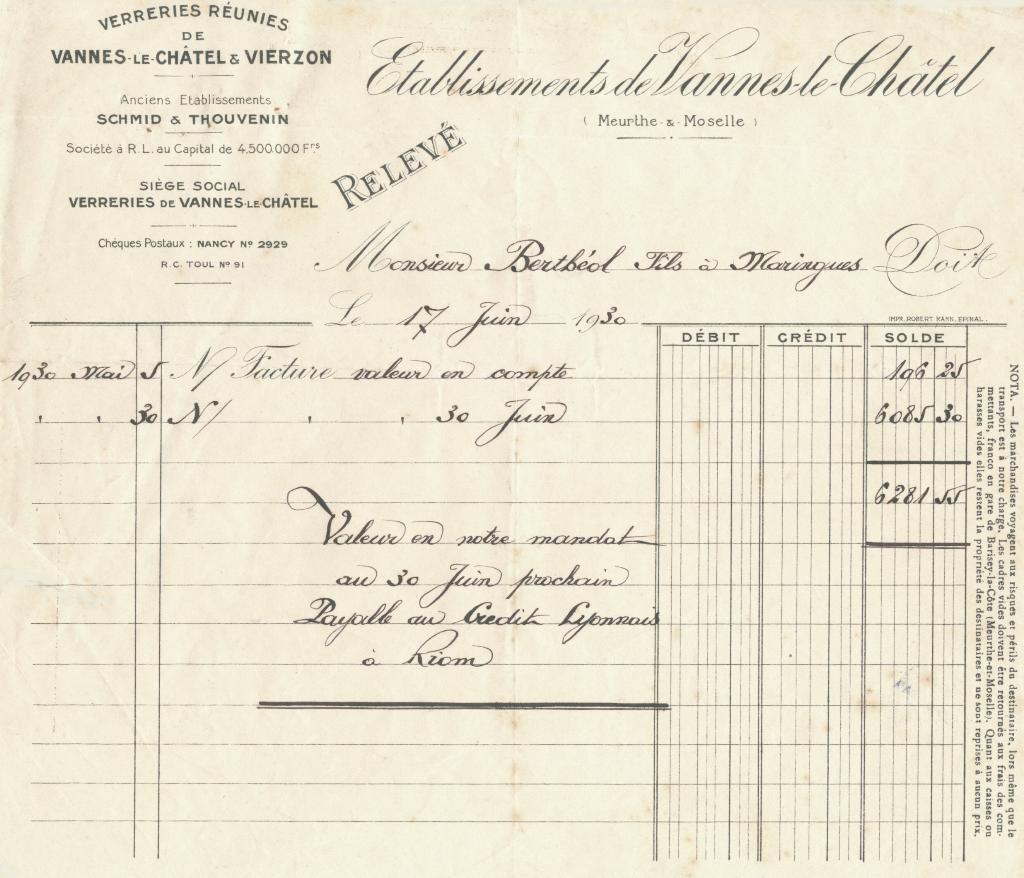 VERRERIES RÉUNIES
DE
VANNES-LE-CHÂTEL & VIERZON
Anciens Etablissements
SCHMID & THOUVENIN
Société à R.L. au Capital de 4.500.000 Frs
SIÈGE SOCIAL
VERRERIES DE VANNES-LE-CHÂTEL
Chèques Postaux : NANCY Nº 2929
R.C. TOUL Nº 91
Etablissements de Vannes-le-Châtel
( Meurthe-&-Moselle )
RELEVÉ
Monsieur Berthéol Fils à Maringues Doit
Le 17 Juin 1930
IMPR. ROBERT KAHN, EPINAL.
DÉBIT CRÉDIT SOLDE
1930 Mai 5 N/ Facture valeur en compte 196 25
" " 30 N/ " " 30 Juin 6085 30
6281 55
Valeur en notre mandat
au 30 Juin prochain
Payable au Credit Lyonnais
à Riom
NOTA. — Les marchandises voyagent aux risques et périls du destinataire, lors même que le
transport est à notre charge. Les cadres vides doivent être retournés aux frais des com-
mettants, franco en gare de Barisey-la-Côte (Meurthe-et-Moselle). Quant aux caisses ou
harasses vides elles restent la propriété des destinataires et ne sont reprises à aucun prix.